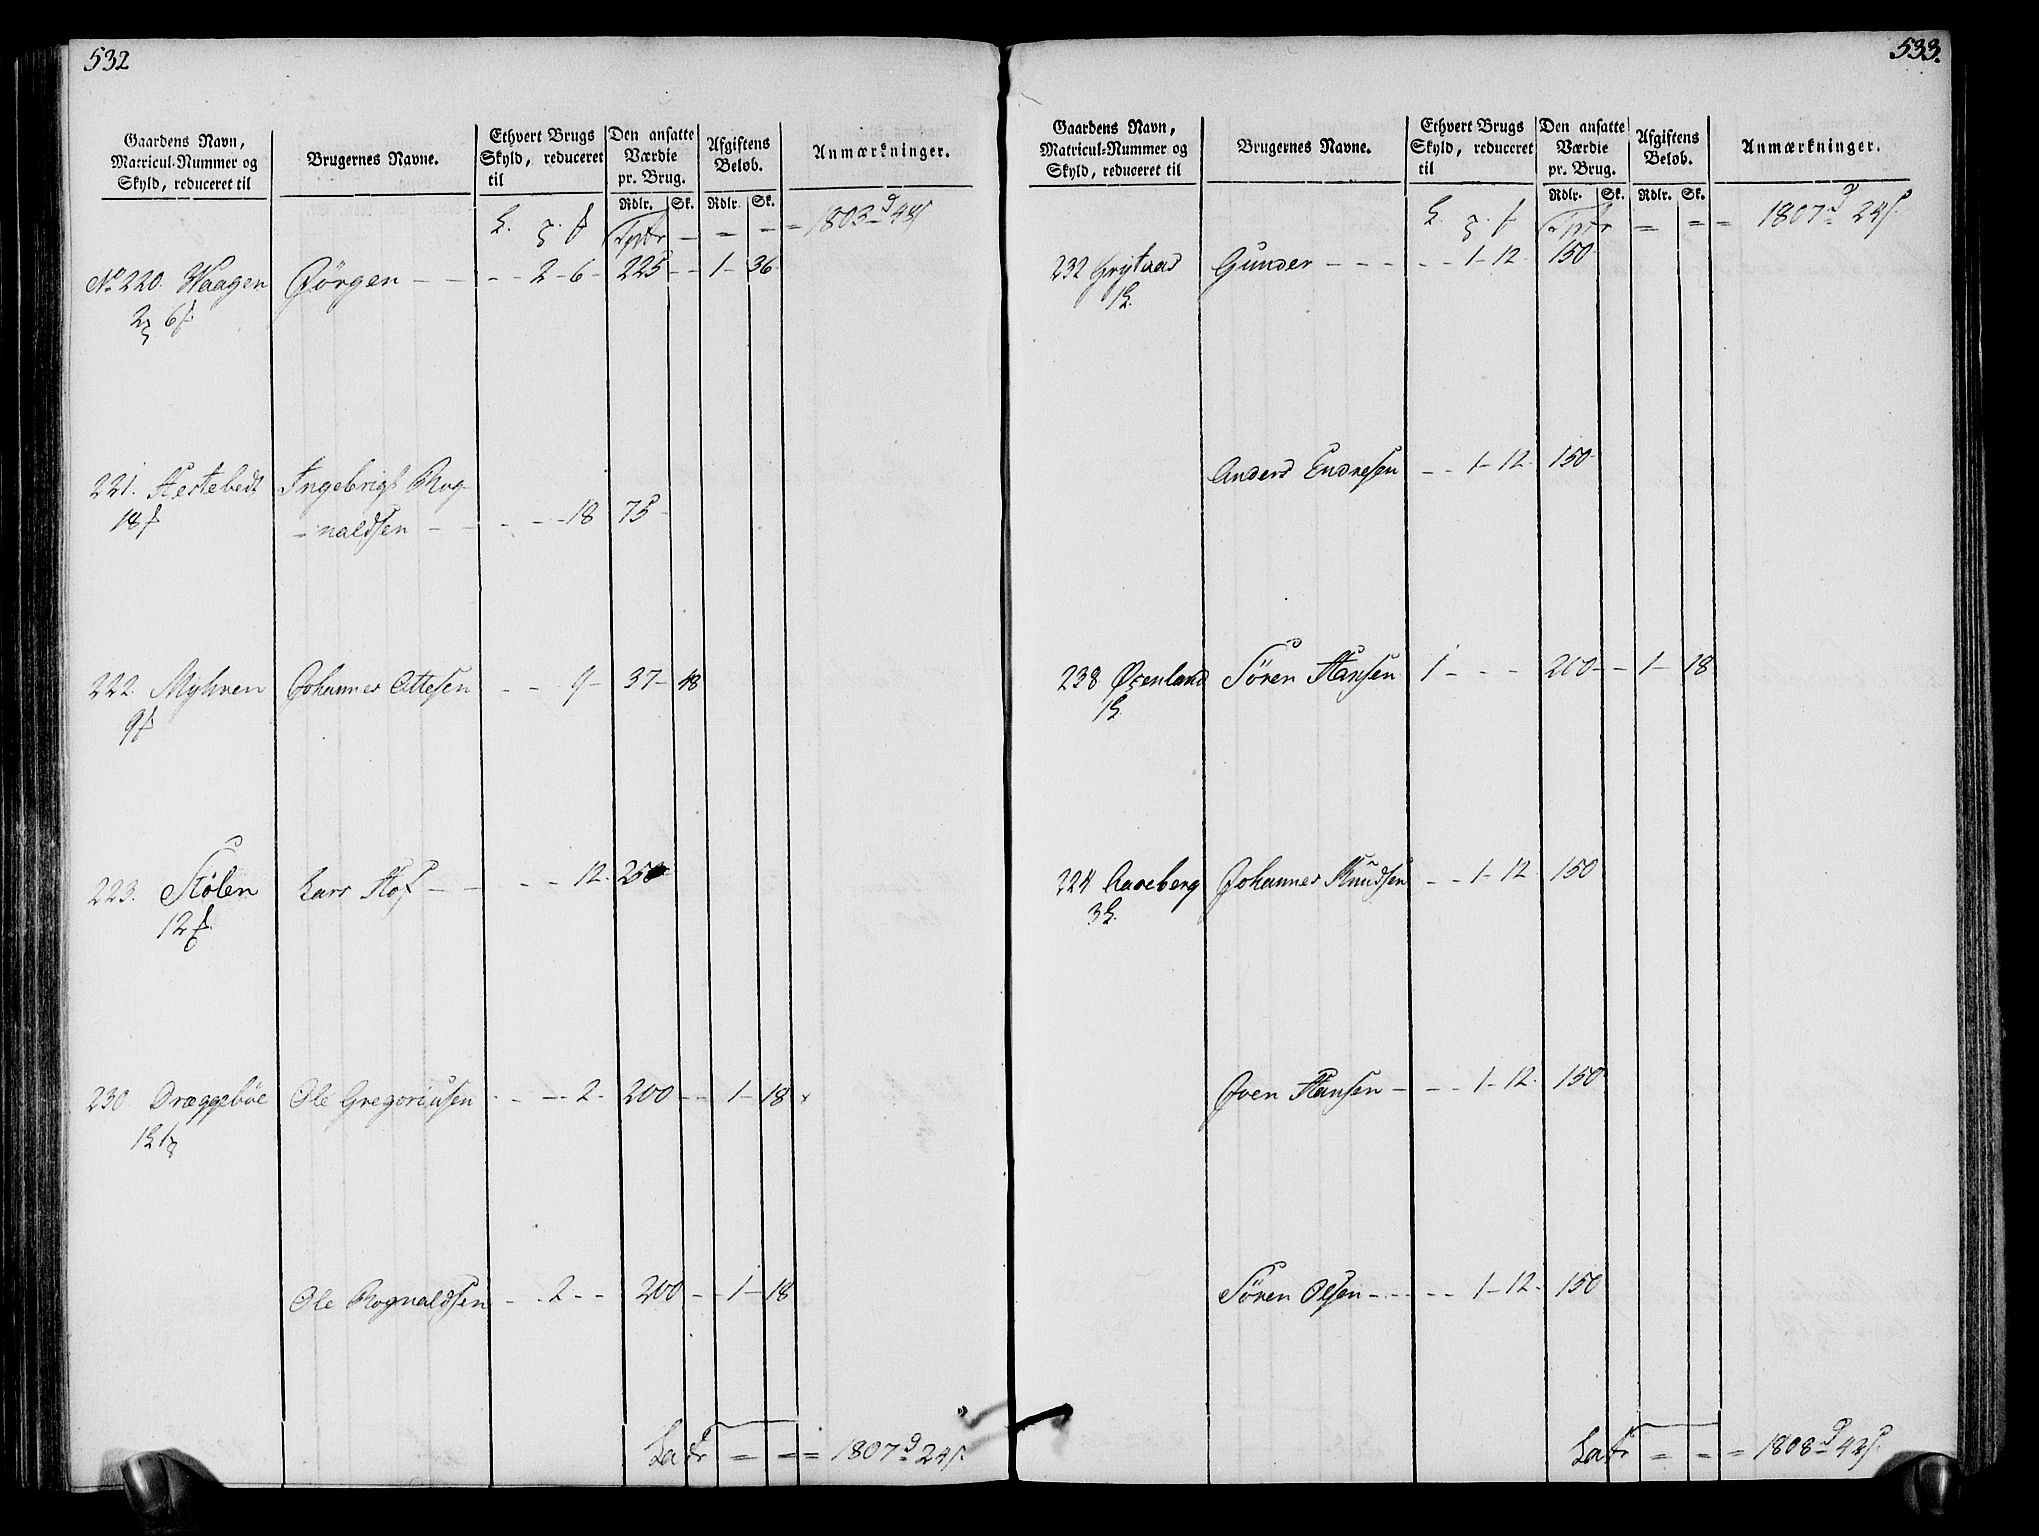 532
Gaardens Navn, Matricul-Nummer og Skyld, reduceret til
Brugernes Navne.
Ethvert Brugs Skyld, reduceret til
Den ansatte Værdie pr. Brug.
Afgiftens Beløb.
Anmærkninger.
Rdlr. Sk. Rdlr. Sk.
Tpr - - - = 1803 d 48 s
No 220. Waagen Jørgen - - - - 2 - 6 - 225 - - 1 - 36
2 6
221. Hestebedt Ingebrigt Rog-
18 - naldsen - - - - - 18 75 -
222. Myhren Johannes Ottesen - - 9 - 37 - 48
9
223. Stølen Lars Hof - - - - 12. 250
12
230 Dræggebøe Ole Gregoriusen - - - 2 - 200 - - 1 - 18
1 1
Ole Rognaldsen - - 2 - - 200 - - 1 - 18
Latr = = = 1807 d 24 s.
533.
Gaardens Navn, Matricul-Nummer og Skyld, reduceret til
Brugernes Navne.
Ethvert Brugs Skyld, reduceret til
Den ansatte Værdie pr. Brug.
Afgiftens Beløb.
Anmærkninger.
Rdlr. Sk. Rdlr. Sk.
Tpr = = = 1807 d 24 s.
232 Grytaas Gunder - - - - - 1 - 12 150
1
Anders Endresen - - 1 - 12 150
238 Øxenland Søren Hansen 1 - - - 200 - - 1 - 18
1
224 Aaseberg Johannes Knudsen - - 1 - 12 150
3
Iven Hansen - - - 1 - 12. 150
Søren Olsen - - - - - 1 - 12. 150
Latr = = = 1808 d 42 s.